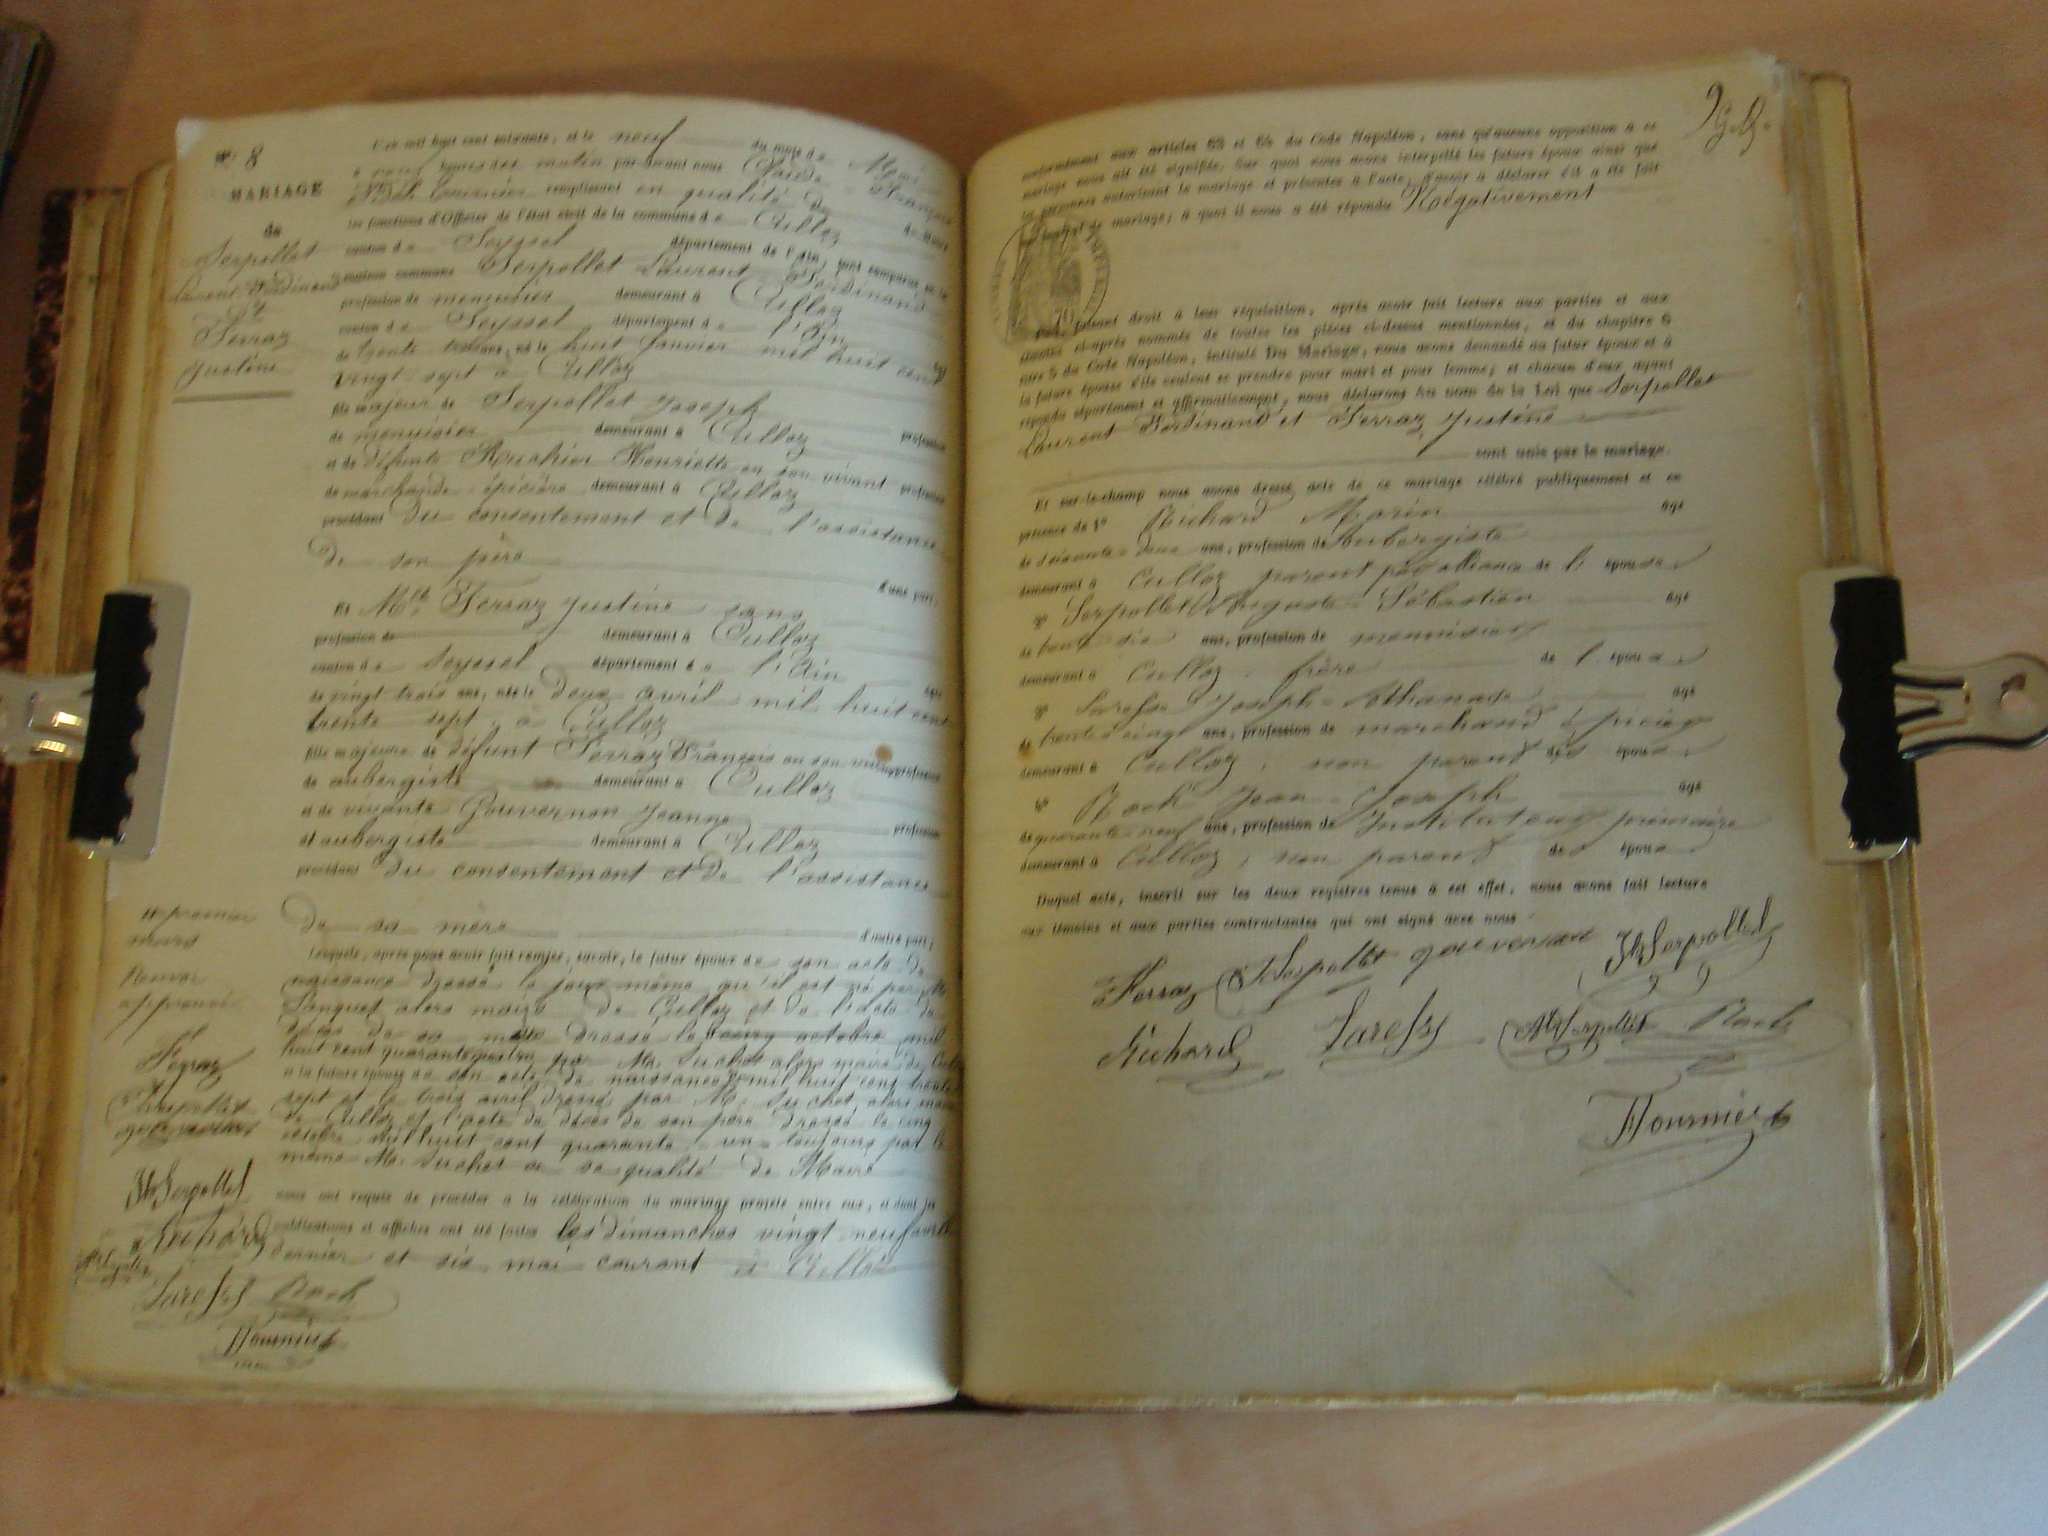 N° 8
MARIAGE
de
Serpollet
Laurent Ferdinand
et
Serraz
Justine
L'an mil huit cent soixante, et le neuf du mois de Mai
heures du matin par-devant nous Claude François
Fournier remplissant en qualité de
les fonctions d'Officier de l'État civil de la commune de Culloz
canton de Seyssel département de l'Ain, sont comparus en la
maison commune Serpollet Laurent Ferdinand
profession de menuisier demeurant à Culloz
canton de Seyssel département de l'Ain
de trente trois ans, né le huit Janvier mil huit cent
vingt sept à Culloz
fils majeur de Serpollet Joseph
de menuisier demeurant à Culloz profession
et de défunte Henriette en son vivant profession
de marchande épicière demeurant à Culloz
procédant du consentement et de l'assistance
de son père
d'une part,
Et Mlle Serraz Justine sans
profession de demeurant à Culloz
canton de Seyssel département de l'Ain
de vingt trois ans, née le Deux avril mil huit cent
trente sept à Culloz
fille majeure de défunt Serraz François en son vivant profession
de aubergiste demeurant à Culloz
et de vivante Gouvernon Jeanne
et aubergiste demeurant à Culloz profession
procédant du consentement et de l'assistance
de sa mère
d'autre part;
Lesquels, après nous avoir fait remise, savoir, le futur époux de son acte de
naissance dressé le jour même qu'il est né par
alors maire de Culloz et de l'acte de
décès de sa mère dressé le octobre mil
huit cent quarante quatre par Mr. Suchet alors maire de Culloz
et la future épouse de son acte de naissance mil huit cent trente
sept et le trois avril dressé par Mr. Suchet alors maire
de Culloz et l'acte de décès de son père dressé le cinq
octobre mil huit cent quarante un toujours par le
même Mr. Suchet en sa qualité de Maire
nous ont requis de procéder à la célébration du mariage projeté entre eux, et dont les
publications et affiches ont été faites les dimanches vingt neuf avril
dernier et six mai courant à Culloz
premier
mars
approuvé
Serraz
Serpollet
gouvernon
Jh Serpollet
Richard
Laress Roch
Fournier
conformément aux articles 63 et 64 du Code Napoléon, sans qu'aucune opposition à ce
mariage nous ait été signifiée. Sur quoi nous avons interpellé les futurs époux ainsi que
les personnes autorisant le mariage et présentes à l'acte, d'avoir à déclarer s'il a été fait
contrat de mariage; à quoi il nous a été répondu Négativement
faisant droit à leur réquisition, après avoir fait lecture aux parties et aux
témoins ci-après nommés de toutes les pièces ci-dessus mentionnées, et du chapitre 6
titre 5 du Code Napoléon, intitulé Du Mariage, nous avons demandé au futur époux et à
la future épouse s'ils veulent se prendre pour mari et pour femme; et chacun d'eux ayant
répondu séparément et affirmativement, nous déclarons au nom de la Loi que Serpollet
Laurent Ferdinand et Serraz Justine
sont unis par le mariage.
Et sur-le-champ nous avons dressé acte de ce mariage célébré publiquement et en
présence de 1° Richard Morin âgé
de soixante-deux ans, profession de Aubergiste
demeurant à Culloz parent par alliance de l'épouse
2° Serpollet Auguste Sébastien âgé
de trente six ans, profession de menuisier
demeurant à Culloz, frère de l'époux
3° Joseph-Athanase âgé
de trente cinq ans, profession de marchand épicier
demeurant à Culloz, non parent des époux
4° Roch Jean Joseph âgé
de quarante-neuf ans, profession de Instituteur primaire
demeurant à Culloz, non parent des époux
Duquel acte, inscrit sur les deux registres tenus à cet effet, nous avons fait lecture
aux témoins et aux parties contractantes qui ont signé avec nous.
Serraz Serpollet gouvernon Jh Serpollet
Richard Laress Serpollet Roch
Fournier